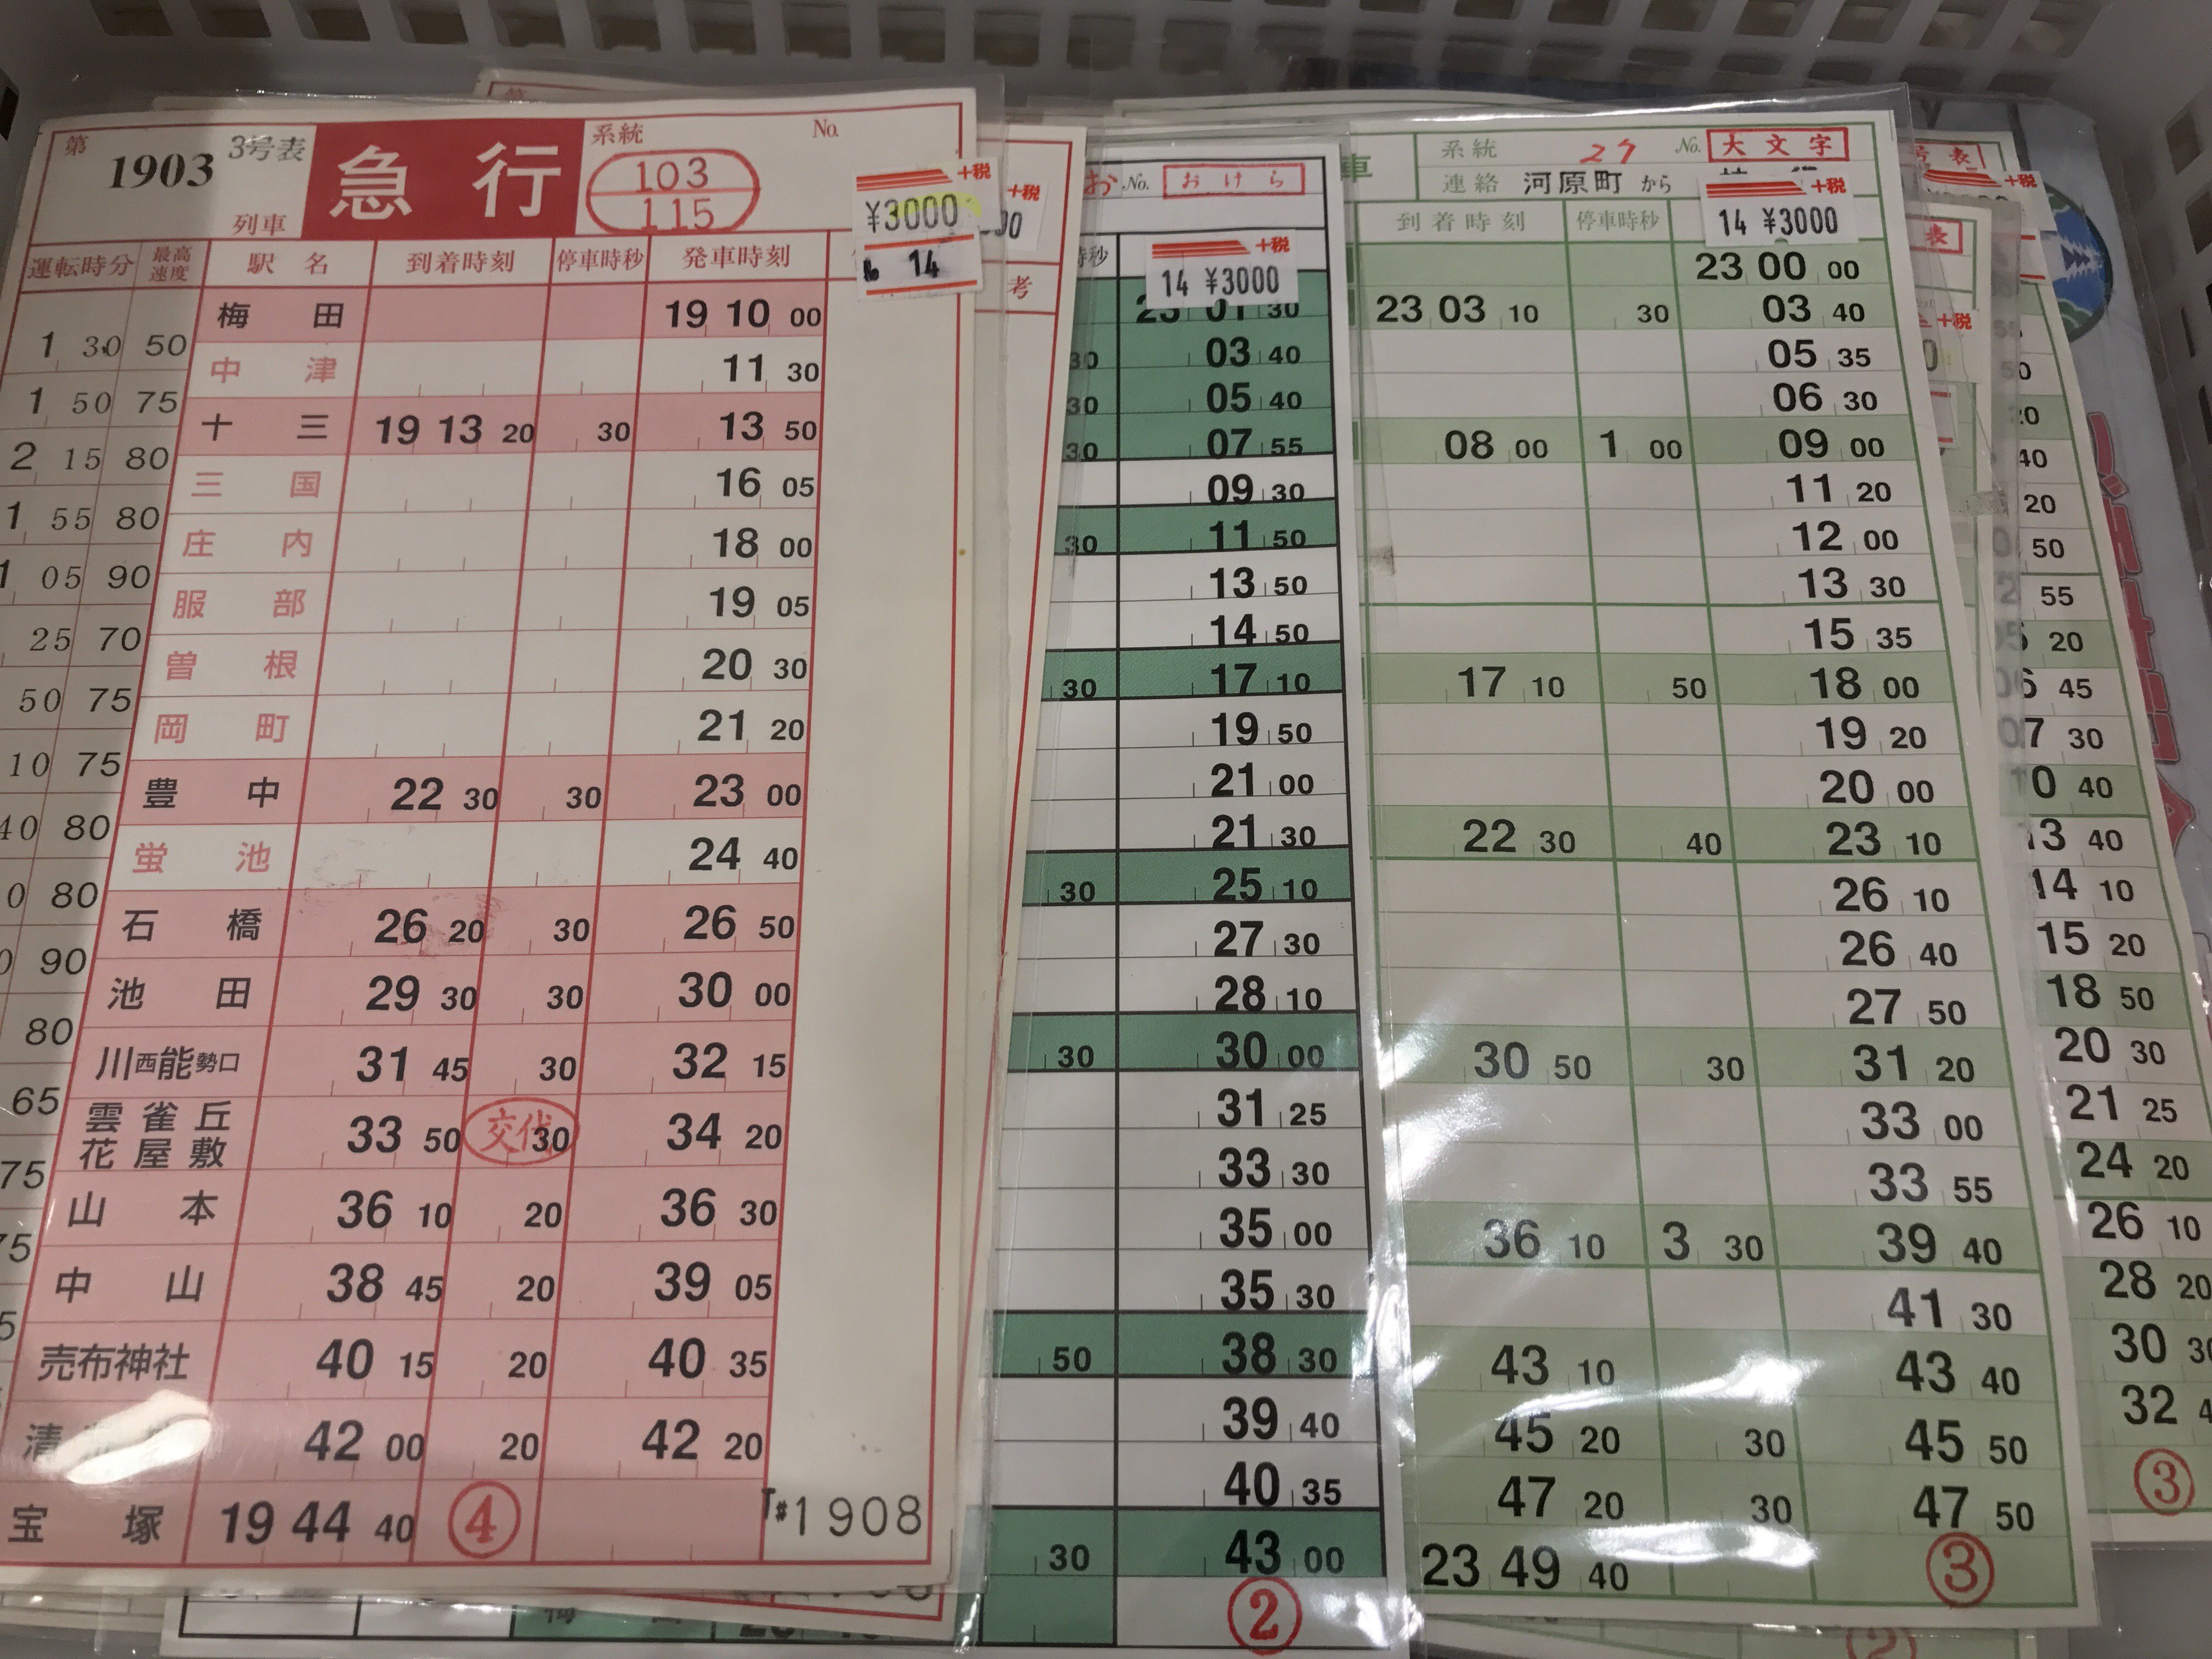 第 1903 3号表 列車
急行
系統 103 115
No.
+税 ¥3000 14
運転時分 最高速度 駅名 到着時刻 停車時秒 発車時刻
1 30 50 梅田 19 10 00
1 50 75 中津 11 30
2 15 80 十三 19 13 20 30 13 50
1 55 80 三国 16 05
1 05 90 庄内 18 00
25 70 服部 19 05
50 75 曽根 20 30
10 75 岡町 21 20
40 80 豊中 22 30 30 23 00
0 80 蛍池 24 40
0 90 石橋 26 20 30 26 50
80 池田 29 30 30 30 00
65 川西能勢口 31 45 30 32 15
75 雲雀丘花屋敷 33 50 交代 30 34 20
75 山本 36 10 20 36 30
5 中山 38 45 20 39 05
売布神社 40 15 20 40 35
清 42 00 20 42 20
宝塚 19 44 40 ④
T#1908
+税
考
お No. おけら
+税
14 ¥3000
時秒
23 01 30
30 03 40
30 05 40
30 07 55
09 30
30 11 50
13 50
14 50
30 17 10
19 50
21 00
21 30
30 25 10
27 30
28 10
30 30 00
31 25
33 30
35 00
35 30
50 38 30
39 40
40 35
30 43 00
②
車 系統 27 No. 大文字
連絡 河原町から
+税
14 ¥3000
到着時刻 停車時秒
23 00 00
23 03 10 30 03 40
05 35
06 30
08 00 1 00 09 00
11 20
12 00
13 30
15 35
17 10 50 18 00
19 20
20 00
22 30 40 23 10
26 10
26 40
27 50
30 50 30 31 20
33 00
33 55
36 10 3 30 39 40
41 30
43 10 43 40
45 20 30 45 50
47 20 30 47 50
23 49 40 ③
号表
+税
表
+税
50
20
40
20
50
55
20
45
07 30
10 40
13 40
14 10
15 20
18 50
20 30
21 25
24 20
26 10
28 20
30 30
32
③